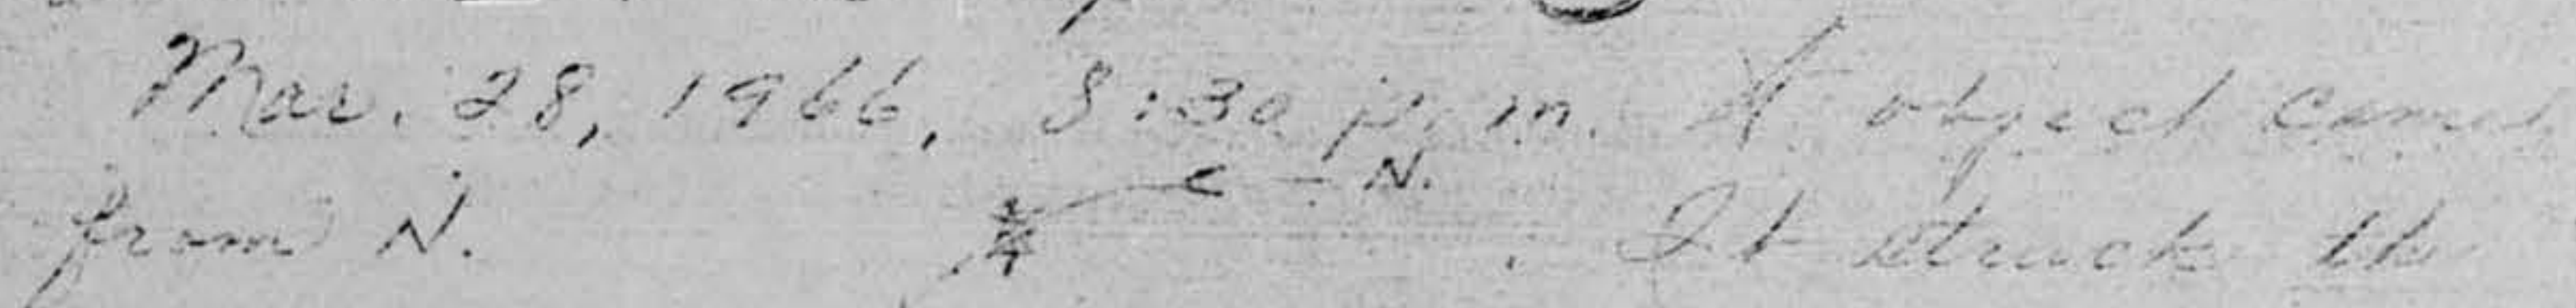 Mar. 28, 1966, 8:30 p.m. A object came
N.
from N. . It struck the